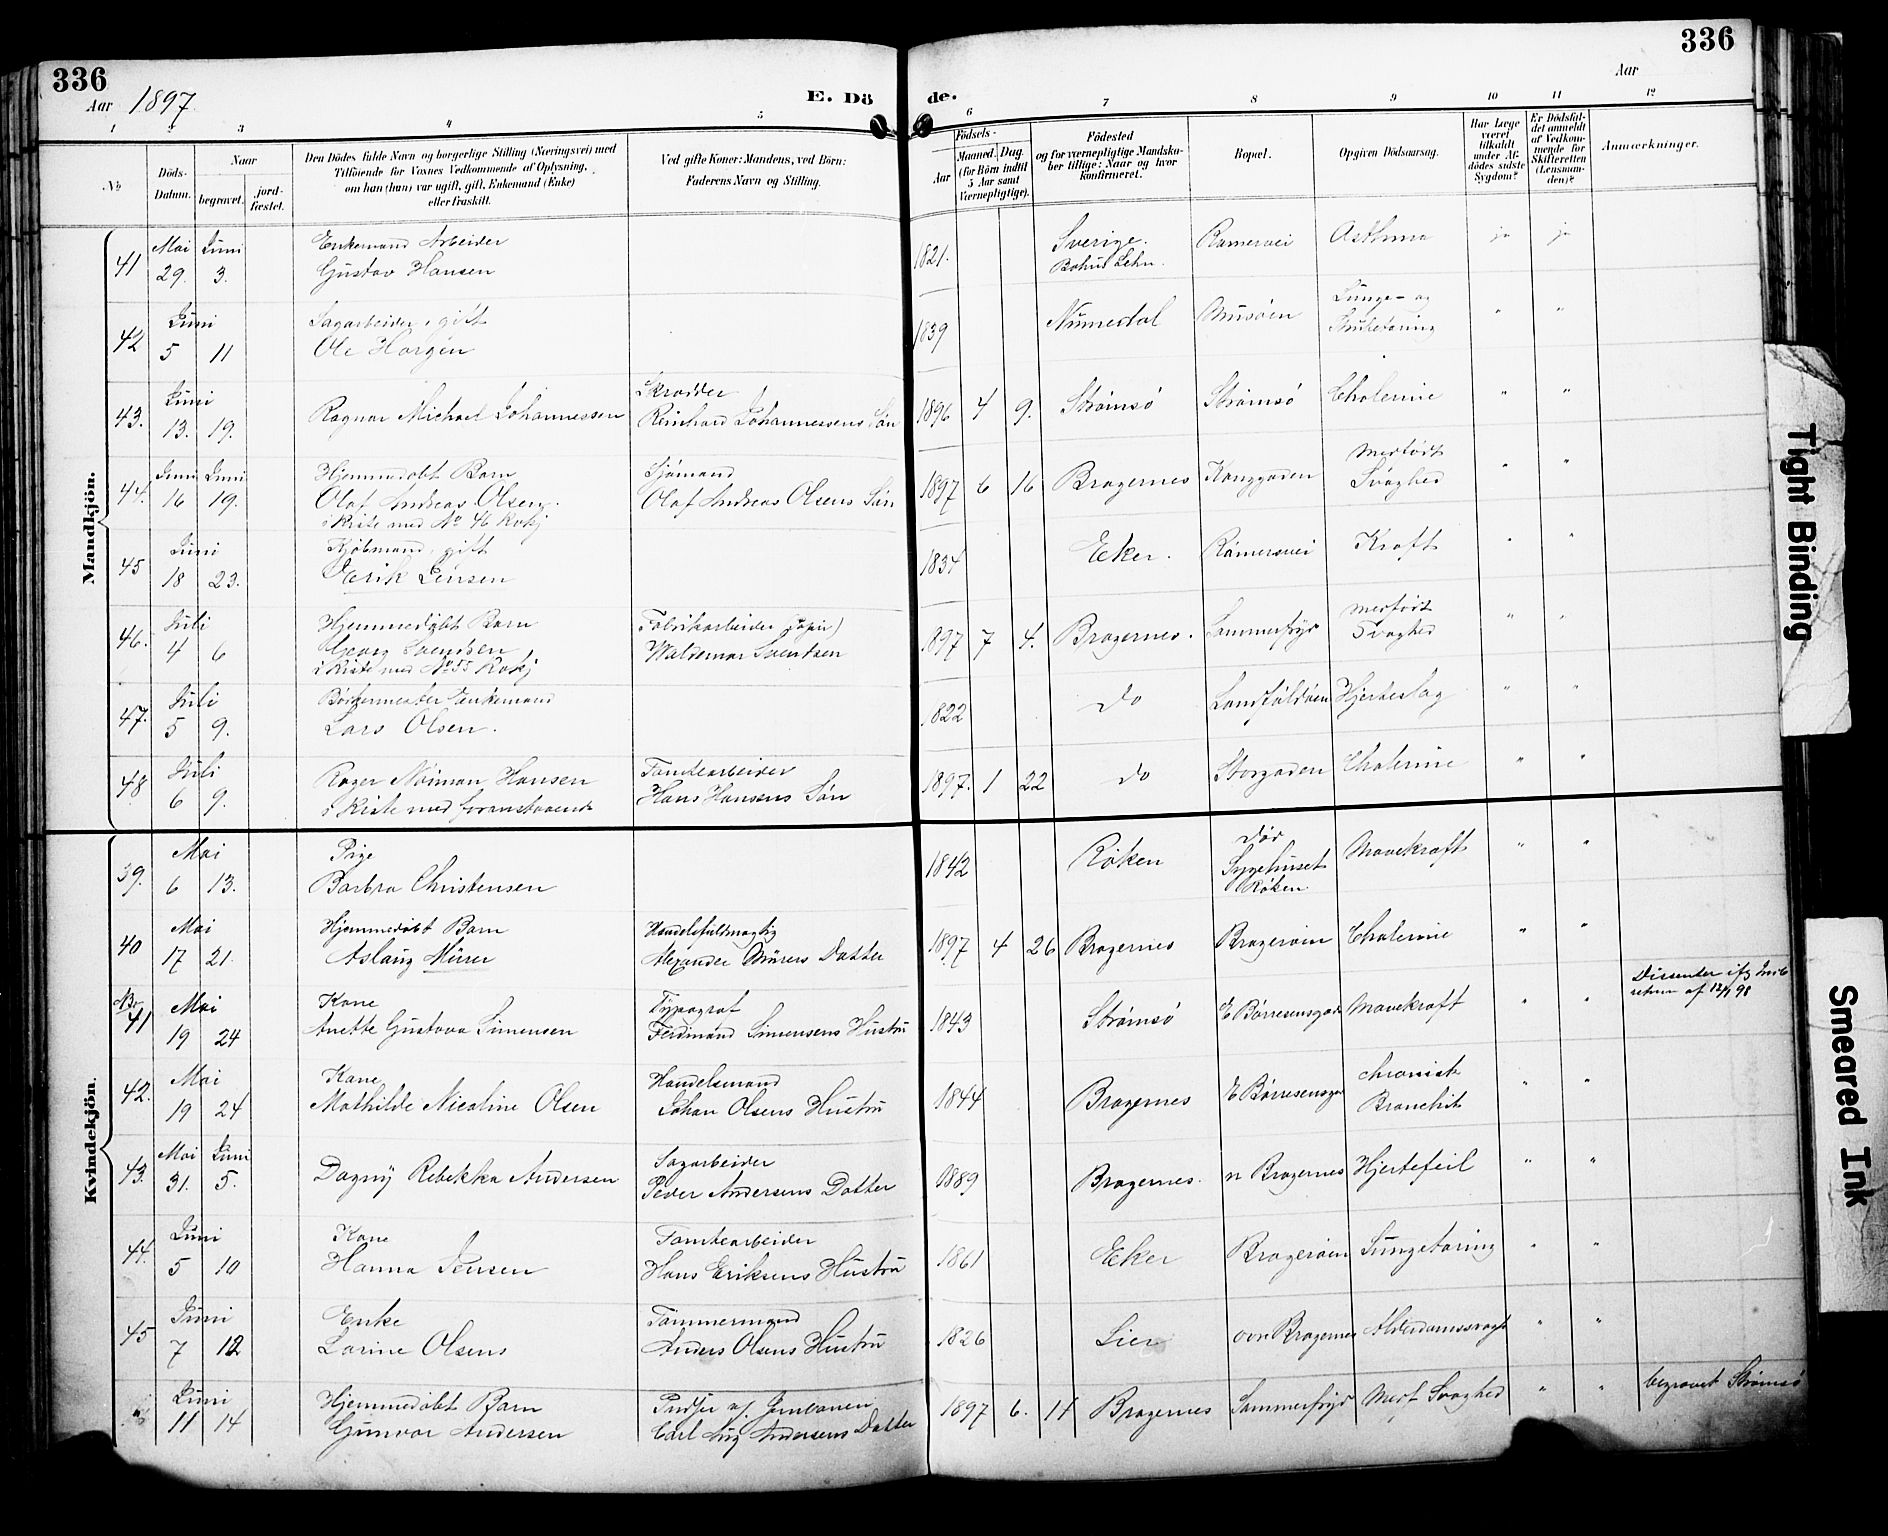 336
Aar 1897.
E. Dö
de.
336
Aar
1 2 3 4 5 6 7 8 9 10 11 12
No
Döds-Datum.
Naar
begravet.
jord-fæstet.
Den Dödes fulde Navn og borgerlige Stilling (Næringsvei) med
Tilföiende for Voxnes Vedkommende af Oplysning,
om han (hun) var ugift, gift, Enkemand (Enke)
eller fraskilt.
Ved gifte Koner: Mandens, ved Börn:
Faderens Navn og Stilling.
Födsels-
Aar
Maaned. Dag.
(for Börn indtil
5 Aar samt
Værnepligtige).
Födested
og for værnepligtige Mandska-
ber tillige: Naar og hvor
konfirmeret.
Bopæl.
Opgiven Dödsaarsag.
Har Læge
været
tilkaldt
under Af-
dödes sidste
Sygdom?
Er Dödsfal-
det anmeldt
af Vedkom-
mende for
Skifteretten
(Lensman-
den)?
Anmærkninger.
Mandkjön.
41 Mai 29. Juni 3. Enkemand Arbeider
Gustav Hansen 1821. Sverige. Bohus Lehn. Rømersvei Asthma ja ja
42 Juni 5 11 Sagarbeider, gift
Ole Horgen 1839 Numedal Musøen Lunge- og
Strubetæring " "
43. Juni 13. 19. Ragnar Michael Johannessen Skrædder
Reinhard Johannessens Søn 1896 4 9. Strømsø Strømsø Cholerine " "
44. Juni 16 Juni 19. Hjemmedøbt Barn
Olaf Andreas Olsen.
i Kiste med No 46 Kvkj Sjømand
Olaf Andreas Olsens Søn 1897 6 16 Bragernes Konggaden Medfødt
Svaghed " "
45 Juni 18 23. Kjøbmand, gift
Erik Jensen 1834 Eker. Rømersvei Kræft " "
46. Juli 4 6 Hjemmedøbt Barn
Georg Svendsen
i Kiste med No 55 Kvkj Fabrikarbeider (Papir)
Waldemar Svendsen 1897 7 4. Bragernes. Sommerfryd Medfødt
Svaghed " "
47. Juli 5 9. Bødkermester Enkemand
Lars Olsen. 1822 do Landfaldøen Hjerteslag " "
48 Juli 6 9. Roger Nöiman Hansen
i Kiste med foranstaaende Tomtearbeider
Hans Hansens Søn 1897. 1 22 do Storgaden Cholerine " "
Kvindekjön.
39. Mai 6 13. Pige
Barbra Christensen 1842 Røken Død
Sygehuset
Røken. Mavekræft " "
40 Mai 17 21. Hjemmedøbt Barn
Aslaug Mürer Handelsfuldmægtig
Alexander Mürers Datter 1897 4 26 Bragernes Bragerøen Cholerine " "
41 Mai 19 24 Kone
Anette Gustava Simensen Typograf
Ferdinand Simensens Hustru 1843 Strømsø E Børresensgade Mavekræft " " Dissenter ifg
af 12/1 98
42. Mai 19 24 Kone
Mathilde Nicoline Olsen Handelsmand
Johan Olsens Hustru 1844 Bragernes E Børresensga chronisk
Bronchit " "
43. Mai 31. Juni 5. Dagny Rebekka Andersen Sagarbeider
Peder Andersens Datter 1889 Bragernes. n Bragernes Hjertefeil " "
44. Juni 5 10 Kone
Hanna Jensen Tomtearbeider
Hans Eriksens Hustru 1861 Eker Bragerøen Lungetæring " "
45 Juni 7 12 Enke
Lorine Olsens Tømmermand
Anders Olsens Hustru 1826 Lier ovn Bragernes Alderdomssvagh " "
Juni 11 14 Hjemmedøbt Barn
Gunvor Andersen Pudser v.
Carl Aug Andersens Datter 1897 6. 11 Bragernes Sommerfryd Medf Svaghed " " begravet Strømsø
Tight Binding
Smeared Ink